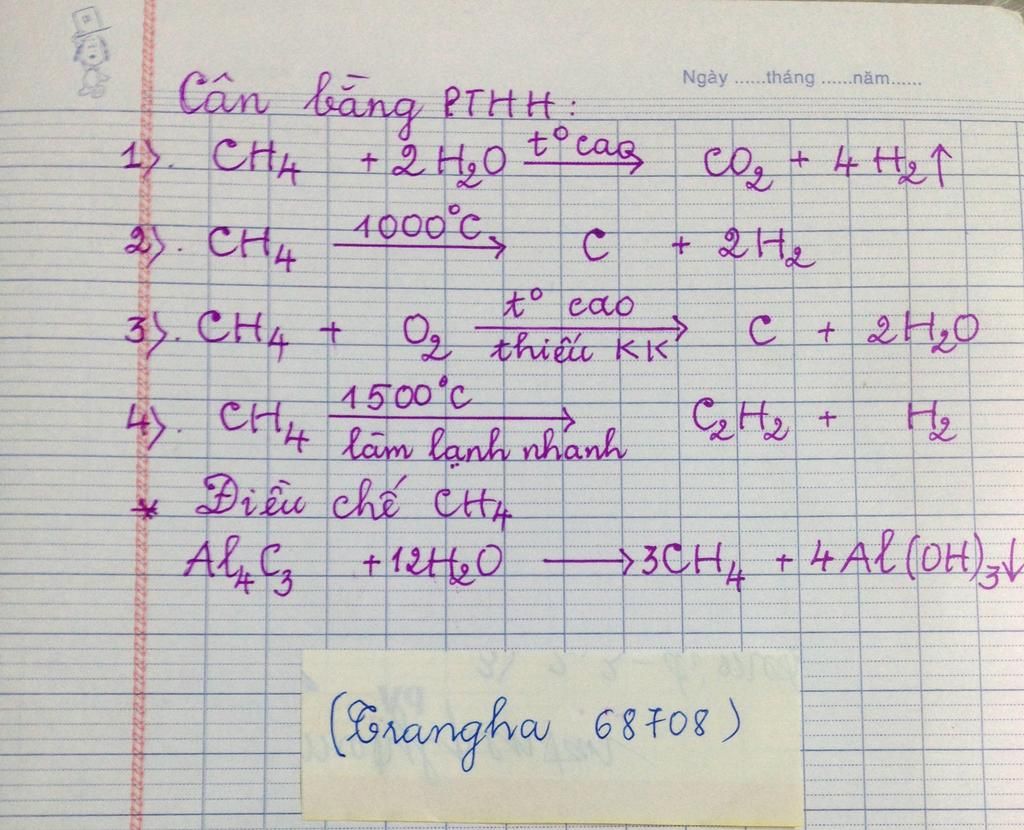 Ngày ......tháng ......năm......
Cân bằng PTHH:
1). CH4 + 2H2O t° cao → CO2 + 4H2↑
2). CH4 1000°C → C + 2H2
3). CH4 + O2 t° cao thiếu KK → C + 2H2O
4). CH4 1500°C làm lạnh nhanh → C2H2 + H2
* Điều chế CH4
Al4C3 + 12H2O → 3CH4 + 4Al(OH)3↓
(Trangha 68708)